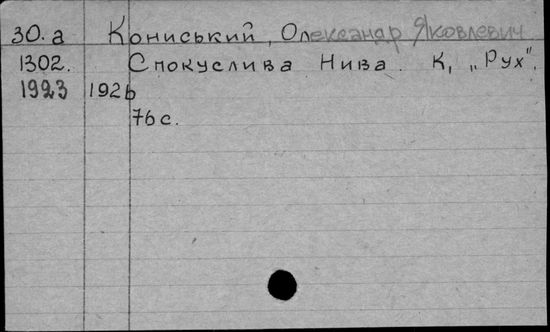 30.а Кониський, Олександр Яковлевич
1302. Спокуслива Нива. К, „Рух".
1923 1926
76 с.